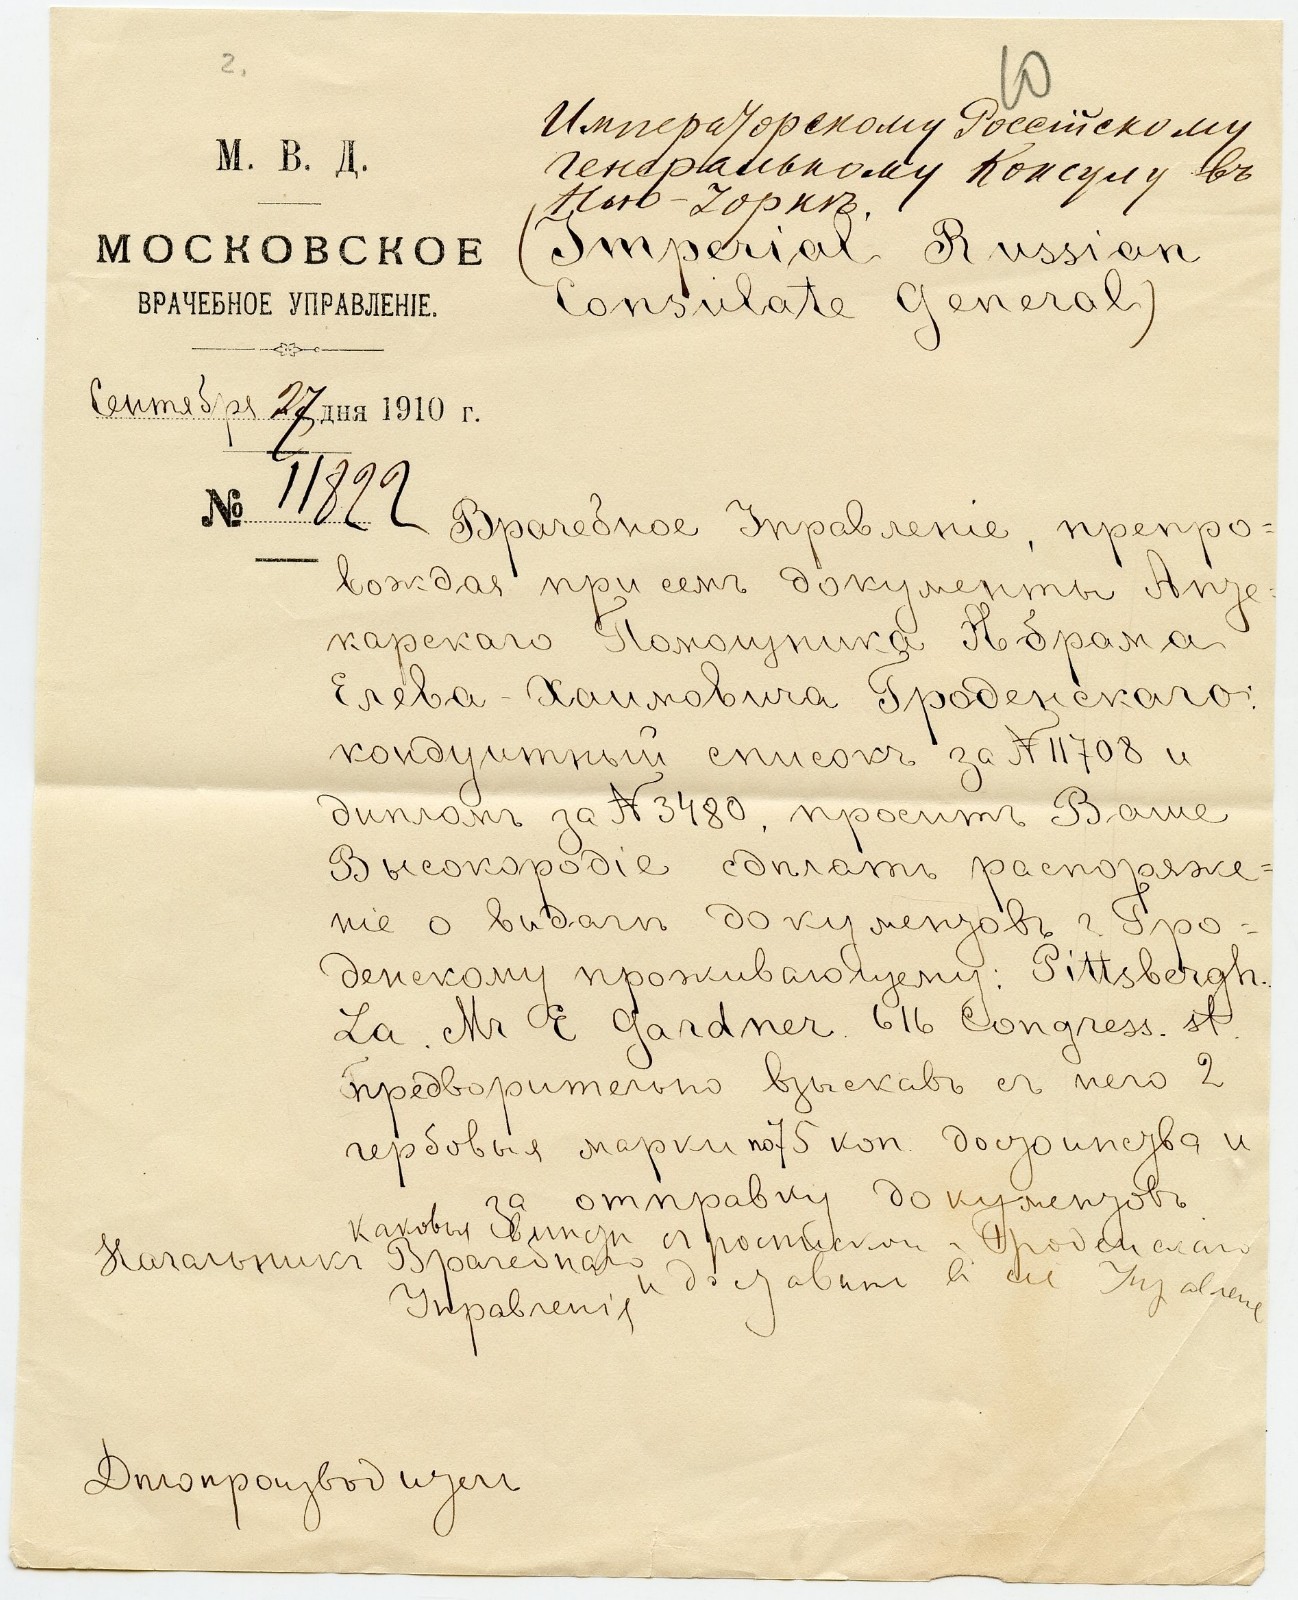 2.
10
М. В. Д.
МОСКОВСКОЕ
ВРАЧЕБНОЕ УПРАВЛЕНІЕ.
Сентября 27 дня 1910 г.
№ 11822
Императорскому Россійскому
Генеральному Консулу въ
Нью-Іоркѣ.
(Imperial Russian
Consulate General)
Врачебное Управленіе, препро=
вождая при семъ документы Апте=
карскаго Помощника Абрама
Елева-Хаимовича Гроденскаго:
кондуитный списокъ за № 11708 и
дипломъ за № 3480, проситъ Ваше
Высокородіе сдѣлать распоряже=
ніе о видачѣ документовъ г. Гро=
денскому проживающему: Pittsbergh.
La. Mr E Gardner. 616 Congress. st.
предворительно взыскавъ съ него 2
гербовыя марки по 75 коп. достоинства и
за отправку документовъ
каковыя съ роспиской г. Гроденскаго
и доставить въ сіе Управленіе
Начальникъ Врачебнаго
Управленія
Дѣлопроизводитель